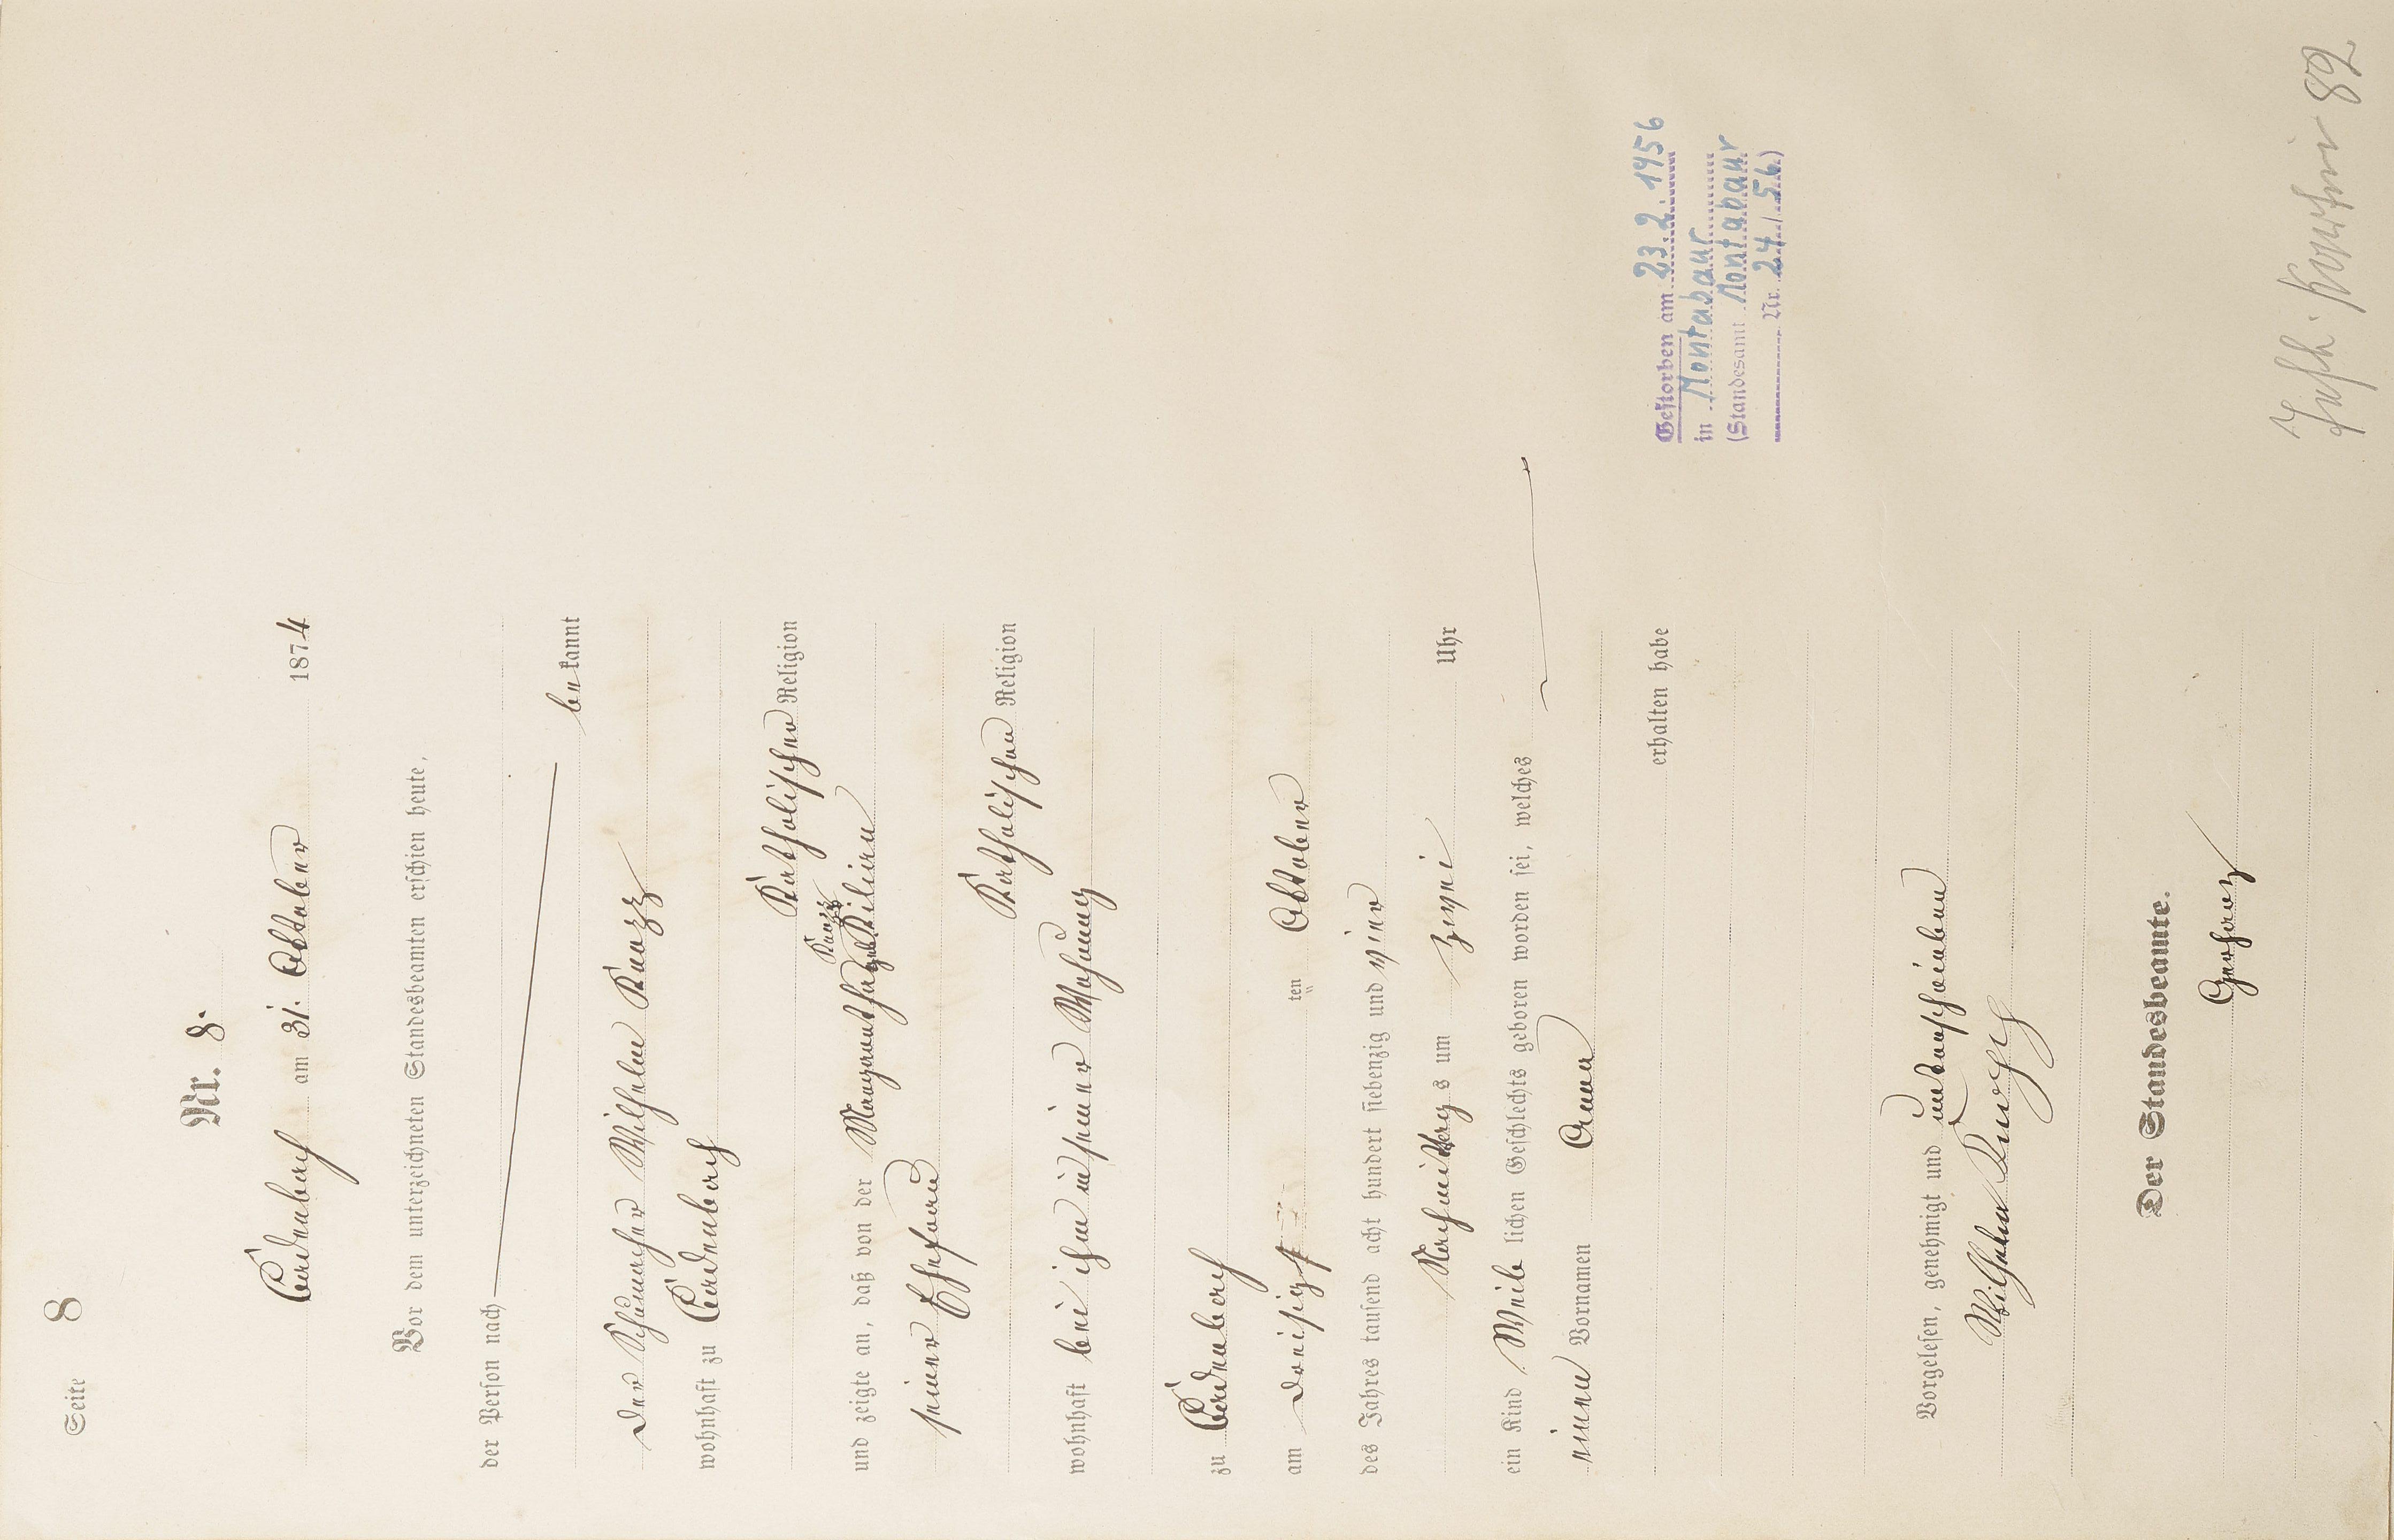 Seite 8
Nr. 8.
Cadenbach am 31. Oktober 1874
Vor dem unterzeichneten Standesbeamten erschien heute,
der Person nach
bekannt
der Schumacher Wilhelm
wohnhaft zu Cadenbach
Katholischer Religion
und zeigte an, daß von der Margaretha geb.
seiner Ehefrau
Katholischer Religion
wohnhaft bei ihm in seiner Wohnung
zu Cadenbach
am dreisigst ten Oktober
des Jahres tausend acht hundert siebenzig und vier
Nachmittags um zwei Uhr
ein Kind Weib lichen Geschlechts geboren worden sei, welches
einen Vornamen Anna
erhalten habe
Gestorben am 23.2.1956
in Montabaur
(Standesamt Montabaur
Nr. 24/56)
Vorgelesen, genehmigt und unterschrieben
Wilhelm
Der Standesbeamte.
89